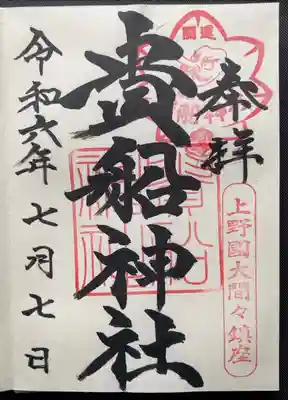 奉拝
開運
上野國大間々鎮座
貴船神社
令和六年七月七日